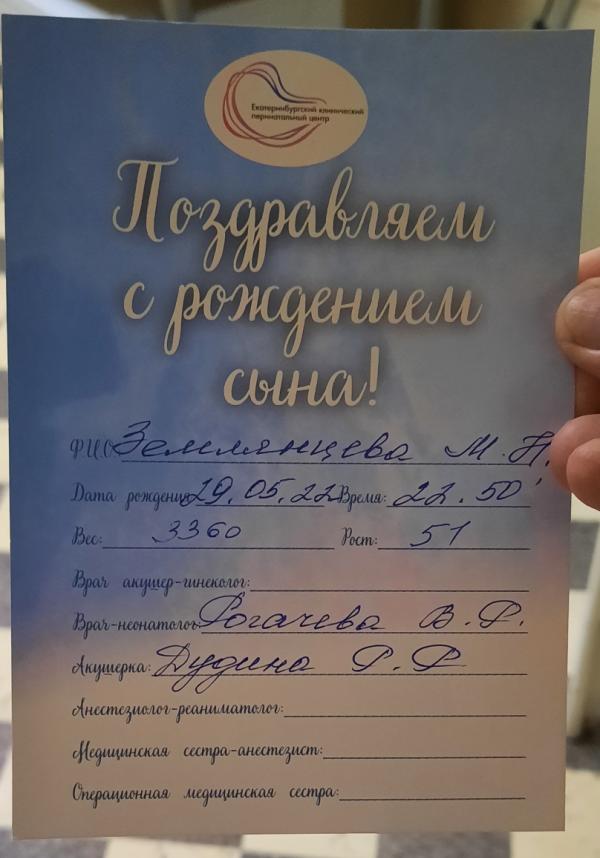 Екатеринбургский клинический
перинатальный центр
Поздравляем
с рождением
сына!
ФИО: Землянцева М. Н.
Дата рождения: 29.05.22 Время: 22.50
Вес: 3360 Рост: 51
Врач акушер-гинеколог:
Врач-неонатолог: Рогачева В. Р.
Акушерка: Дудина Р. Р
Анестезиолог-реаниматолог:
Медицинская сестра-анестезист:
Операционная медицинская сестра: